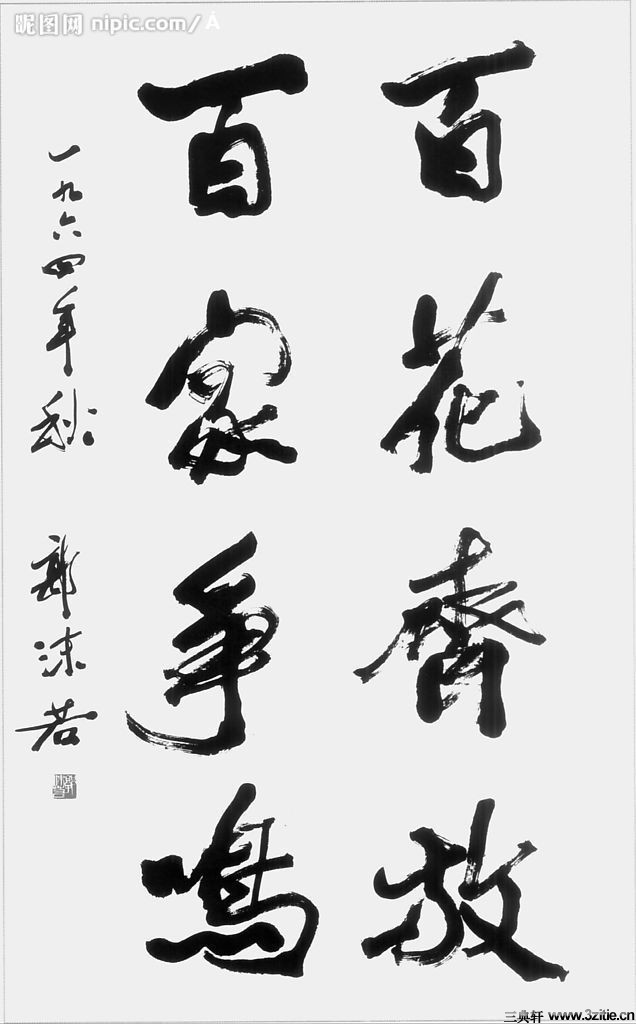 百花齊放
百家爭鳴
一九六四年秋 郭沫若
昵图网 nipic.com/
三典轩 www.3zitie.cn